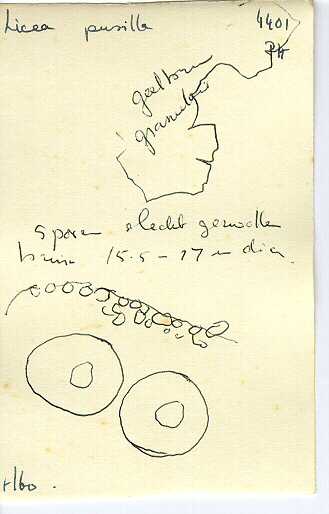 Licea pusilla 4401
geelbruin
granulair
Sporen slecht gezwollen
bruin 15.5 - 17 u diam.